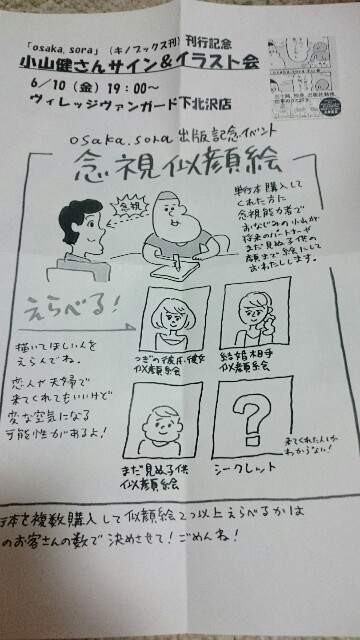 「osaka.sora」(キノブックス刊) 刊行記念
小山健さんサイン＆イラスト会
6/10(金)19:00～
ヴィレッジヴァンガード下北沢店
osaka.sora 出版記念イベント
念視似顔絵
念視
単行本購入して
くれた方に
念視能力者で
おなじみの小山が
将来のパートナーや
まだ見ぬ子供の
顔まで絵にして
おわたしします。
えらべる!
描いてほしい人を
えらんでね。
恋人や夫婦で
来てくれてもいいけど
変な空気になる
可能性があるよ!
つぎの彼氏・彼女
似顔絵
結婚相手
似顔絵
まだ見ぬ子供
似顔絵
?
シークレット
来てくれた人しか
わからない!
行本を複数購入して似顔絵2つ以上えらべるかは
のお客さんの数で決めさせて!ごめんね!